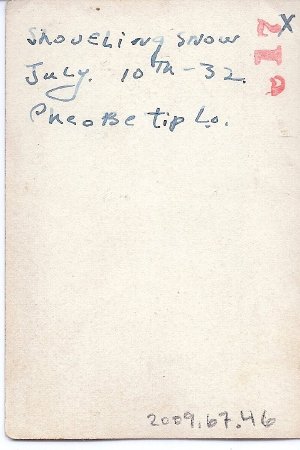 X
Shoveling snow
July. 10TH-32.
PheoBe tip Lo.
2009.67.46